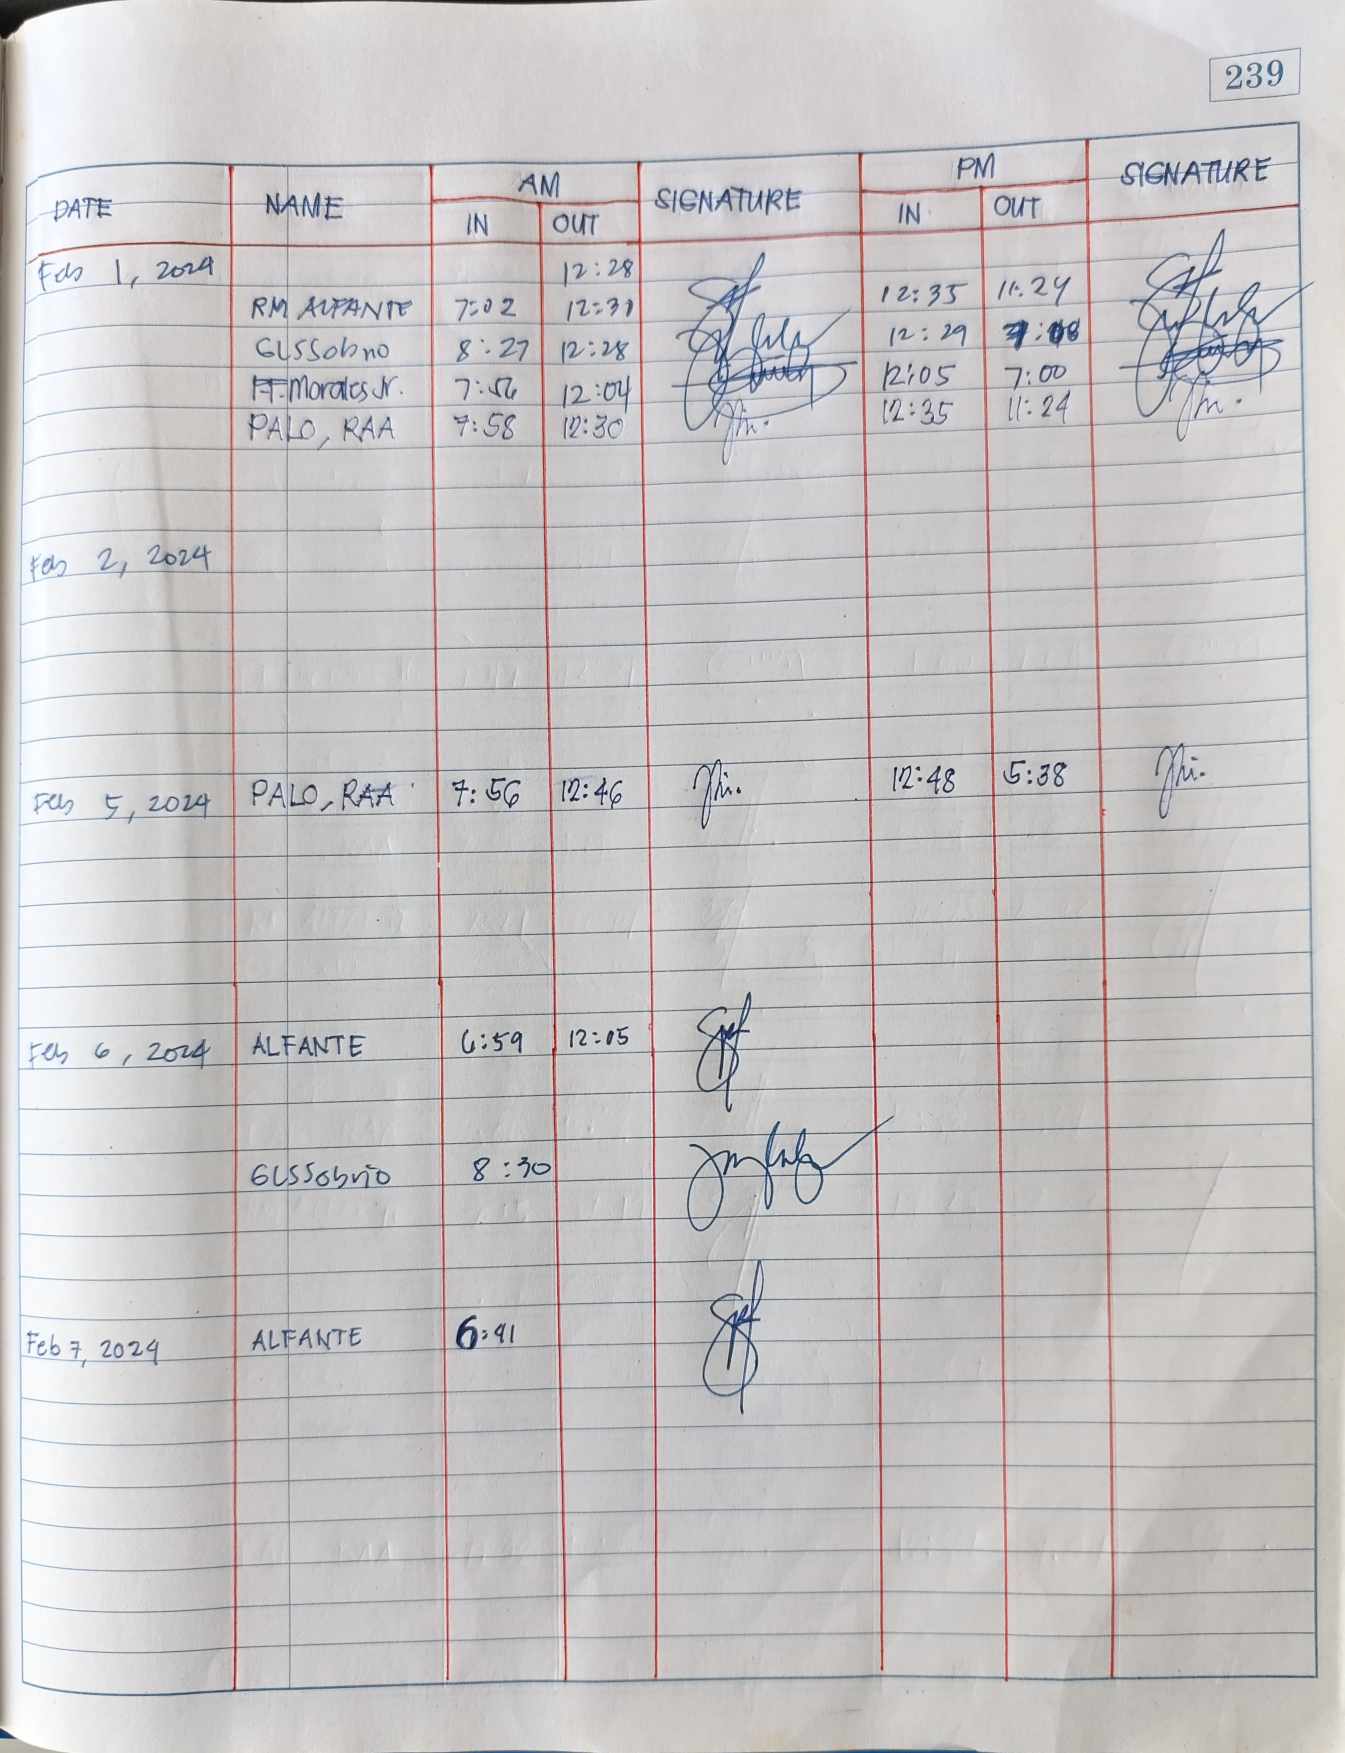 239
DATE NAME AM SIGNATURE PM SIGNATURE
IN OUT IN OUT
Feb 1, 2024 12:28
RM ALFANTE 7:02 12:30 12:35 11:24
GLSSobrio 8:27 12:28 12:29
Morales Jr. 7:56 12:04 12:05 7:00
PALO, RAA 7:58 12:30 12:35 11:24
Feb 2, 2024
Feb 5, 2024 PALO, RAA 7:56 12:46 12:48 5:38
Feb 6, 2024 ALFANTE 6:59 12:05
GLSSobrio 8:30
Feb 7, 2024 ALFANTE 6:41